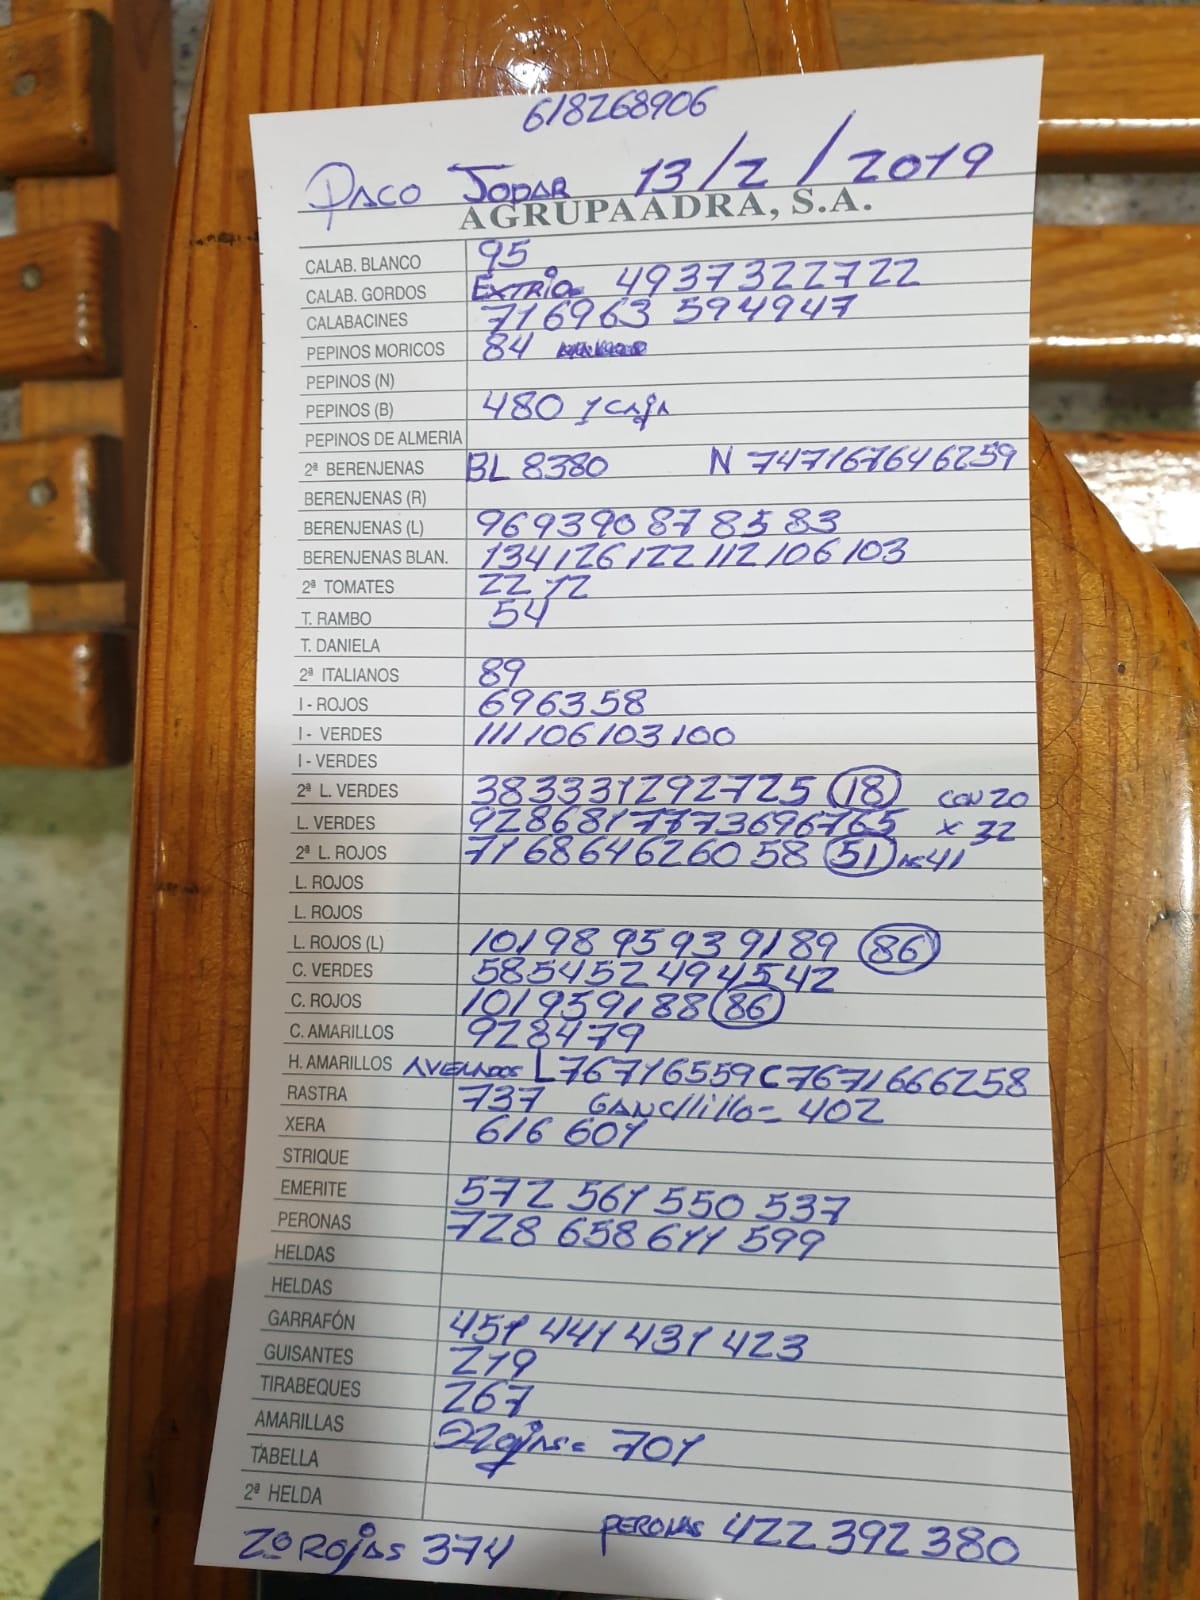 618268906
PACO JODAR 13/2/2019
AGRUPAADRA, S.A.
CALAB. BLANCO 95
CALAB. GORDOS EXTRIO 4937322722
CALABACINES 716963 594947
PEPINOS MORICOS 84
PEPINOS (N)
PEPINOS (B) 480 1 CAJA
PEPINOS DE ALMERIA
2ª BERENJENAS BL 8380 N 747167646259
BERENJENAS (R)
BERENJENAS (L) 969390878583
BERENJENAS BLAN. 134126122112106103
2ª TOMATES 22 12
T. RAMBO 54
T. DANIELA
2ª ITALIANOS 89
I - ROJOS 696358
I - VERDES 111106103100
I - VERDES
2ª L. VERDES 383331292725 (18) CON 20
L. VERDES 92868177773696765 x 32
2ª L. ROJOS 716864626058 (51) 41
L. ROJOS
L. ROJOS
L. ROJOS (L) 1019895939189 (86)
C. VERDES 585452494542
C. ROJOS 101959188 (86)
C. AMARILLOS 928479
H. AMARILLOS L76716559 C7671666258
RASTRA 737 GANCHILLO = 402
XERA 616 601
STRIQUE
EMERITE 572 561 550 537
PERONAS 728 658 611 599
HELDAS
HELDAS
GARRAFÓN 451 441 431 423
GUISANTES 219
TIRABEQUES 267
AMARILLAS = 701
TABELLA
2ª HELDA
2º ROJAS 374 PERONAS 422 392 380